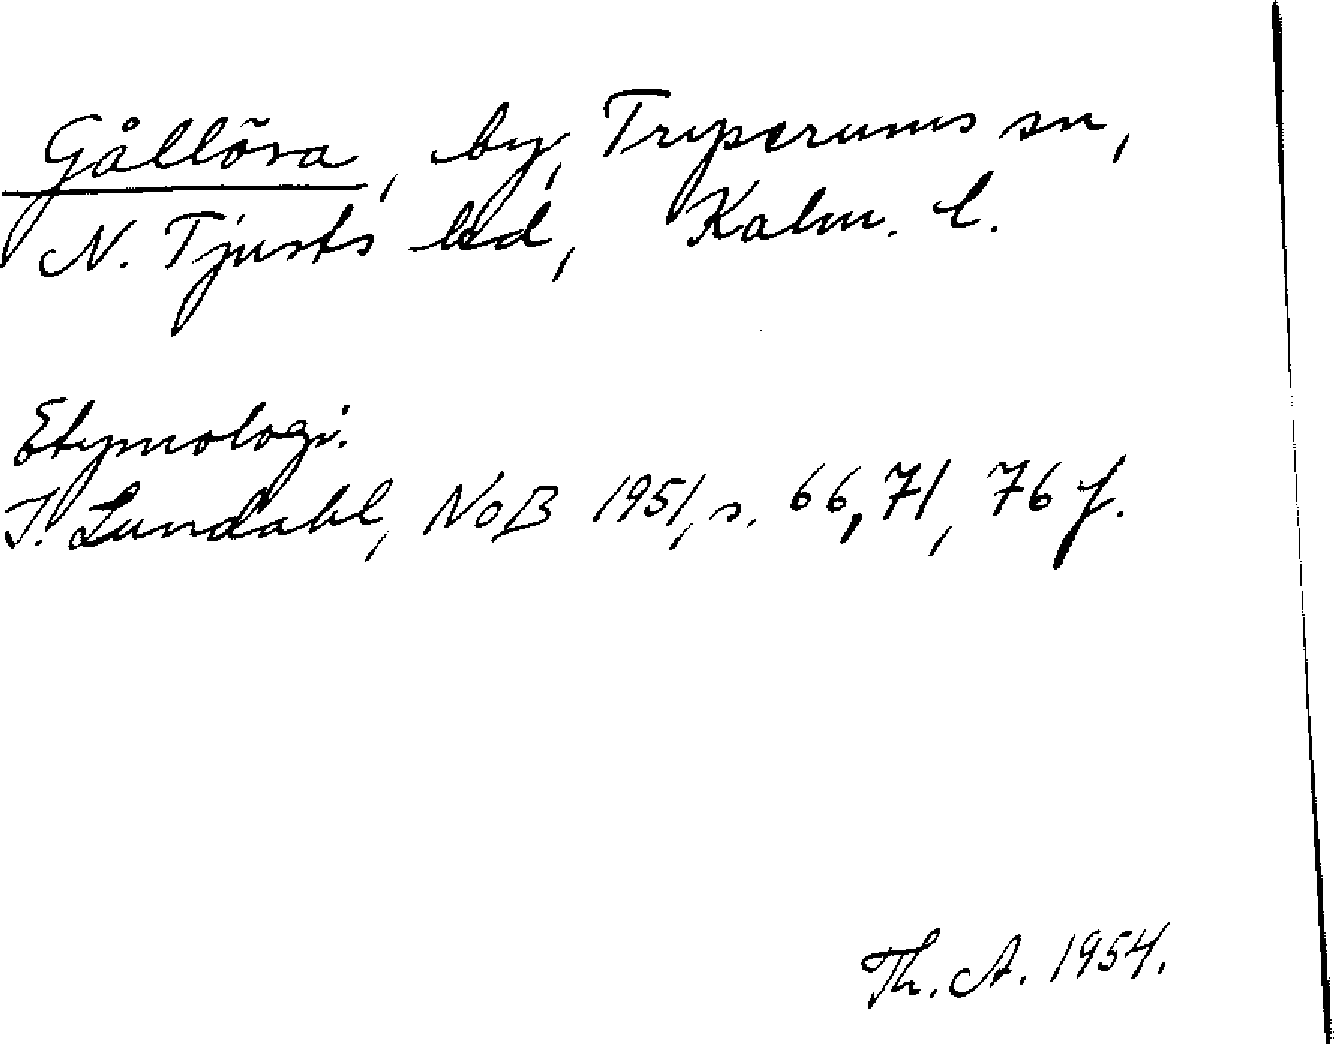 Gållösa, by, Tryserums sn,
N. Tjusts hd, Kalm. l.
Etymologi.
I. Lundahl, NoB 1951, s. 66, 71, 76 f.
Th. A. 1954.